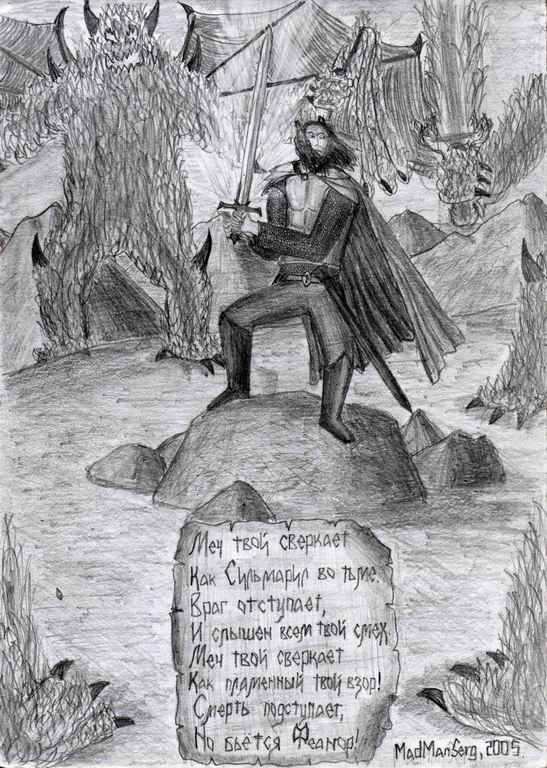 Меч твой сверкает
Как Сильмарил во тьме.
Враг отступает,
И слышен всем твой смех.
Меч твой сверкает
Как пламенный твой взор!
Смерть подступает,
Но бьётся Феанор!
MadManSerg, 2005.